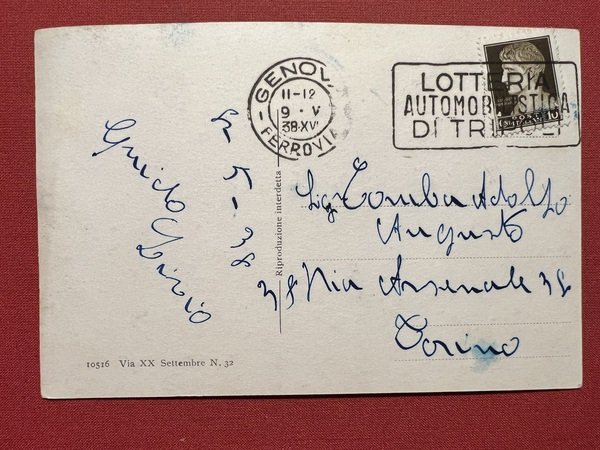 GENOVA
11-12
9 · V
38·XVI
FERROVIA
LOTTERIA
AUTOMOBILISTICA
DI TRIPOLI
10
Riproduzione interdetta
5 - 38
Guido
Sig Tomba Adolfo
Augusto
38 Via Arsenale 38
Torino
10516 Via XX Settembre N. 32